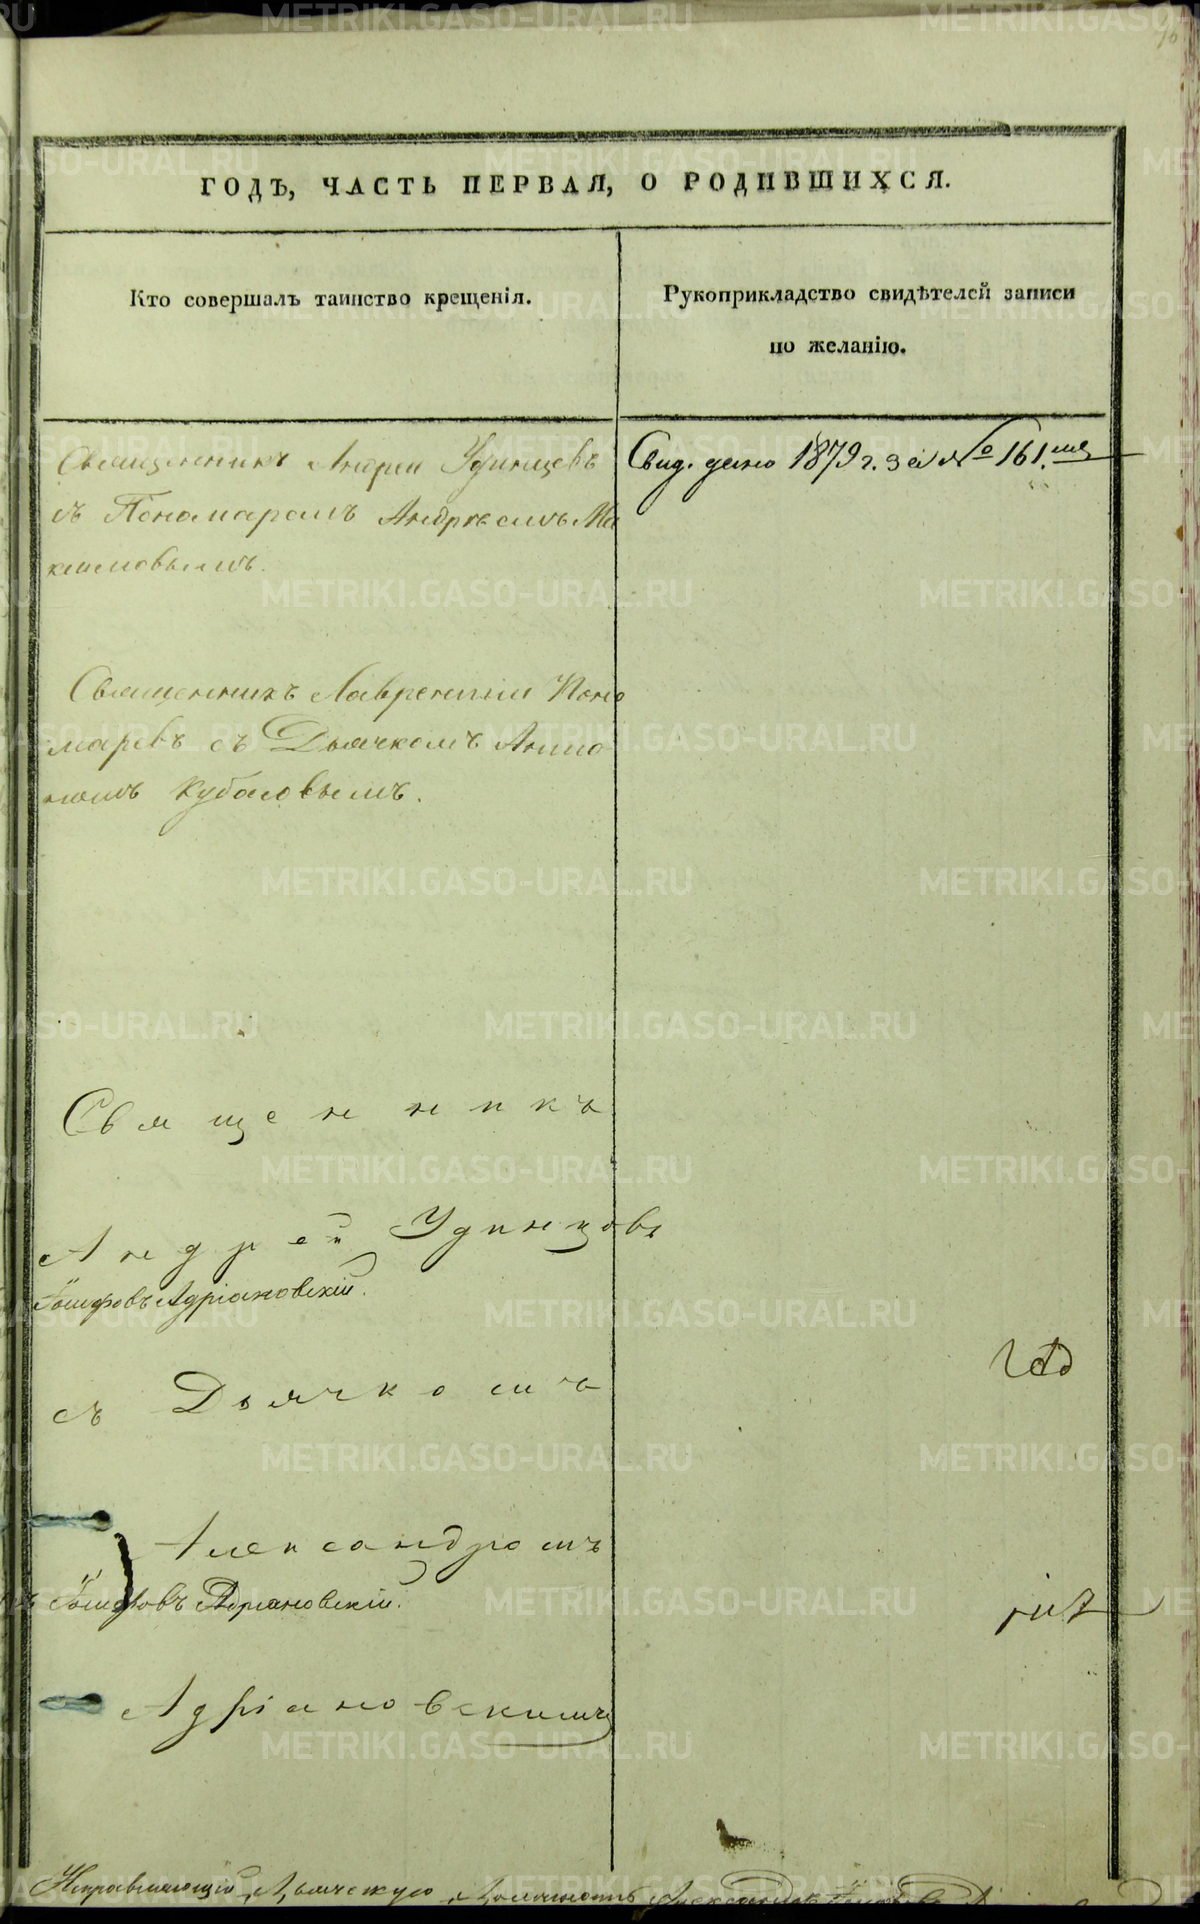 ГОДЪ, ЧАСТЬ ПЕРВАЯ, О РОДИВШИХСЯ.
Кто совершалъ таинство крещенія.
Рукоприкладство свидѣтелей записи
по желанію.
Священникъ Андрей Удинцевъ
съ Пономаремъ Андреемъ Ма
ксимовымъ.
Свид. дано 1879 г. за № 161.
Священникъ Лаврентій Поно
маревъ съ Дьячкомъ Анто
номъ
Священникъ
Андрей Удинцовъ
Адріановскій.
съ Дьячкомъ
Александромъ
Адріановскій.
Адріановскимъ
Исправляющій Дьяческую Должность Александръ
METRIKI.GASO-URAL.RU